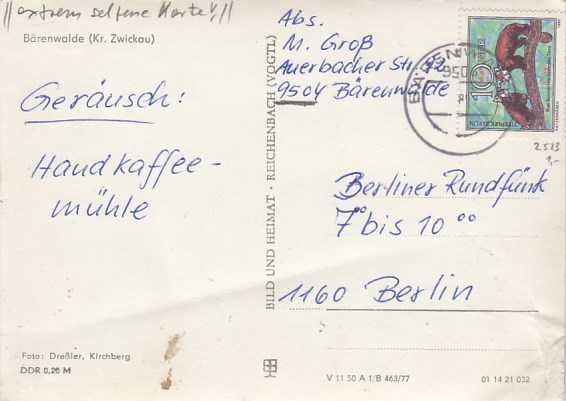 //extrem seltene Karte!//
Bärenwalde (Kr. Zwickau)
Geräusch:
Handkaffee-
mühle
Foto: Dreßler, Kirchberg
DDR 0,20 M
BILD UND HEIMAT · REICHENBACH (VOGTL)
Abs.
M. Groß
Auerbacher Str. 92
9504 Bärenwalde
10
DDR
TIERPARK BERLIN
2523
1,-
Berliner Rundfunk
7⁰⁰ bis 10⁰⁰
1160 Berlin
V 11 50 A 1/B 463/77
01 14 21 032